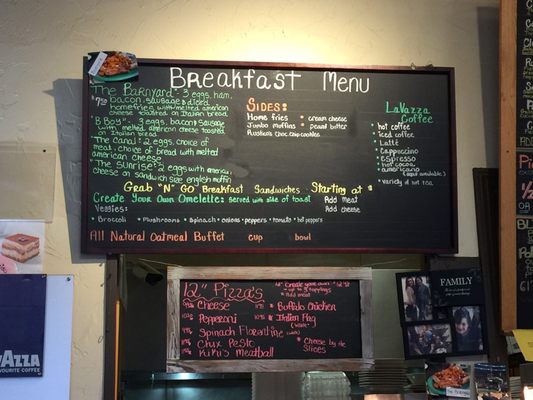 Breakfast Menu
The Barnyard - 3 eggs, ham,
bacon, sausage & diced
homefries with melted american
cheese toasted on Italian bread
"B Boy" - 3 eggs, bacon sausage
with melted american cheese toasted
on Italian bread
"The Canal": 2 eggs, choice of
meat, choice of bread with melted
american cheese
"The Sunrise": 2 eggs with american
cheese on sandwich size english muffin
Sides:
Home fries
Jumbo muffins
Rustica's Choc chip cookies
• cream cheese
• peanut butter
LaVazza
Coffee
• hot coffee
• iced coffee
• Latté
• Cappuccino
• Espresso
• hot cocoa
• americano
• variety of hot tea
Grab "N" Go Breakfast Sandwiches Starting at $
Create Your Own Omelette: served with side of toast
Add meat
Add cheese
Veggies:
• Broccoli • Mushrooms • Spinach • onions • peppers • tomato • hot peppers
All Natural Oatmeal Buffet cup bowl
12" Pizza's
Cheese
Pepperoni
Spinach Florentine
Chix Pesto
Kiki's Meatball
• Add meat
• Buffalo Chicken
• Cheese by the
Slices
FAMILY
AZZA